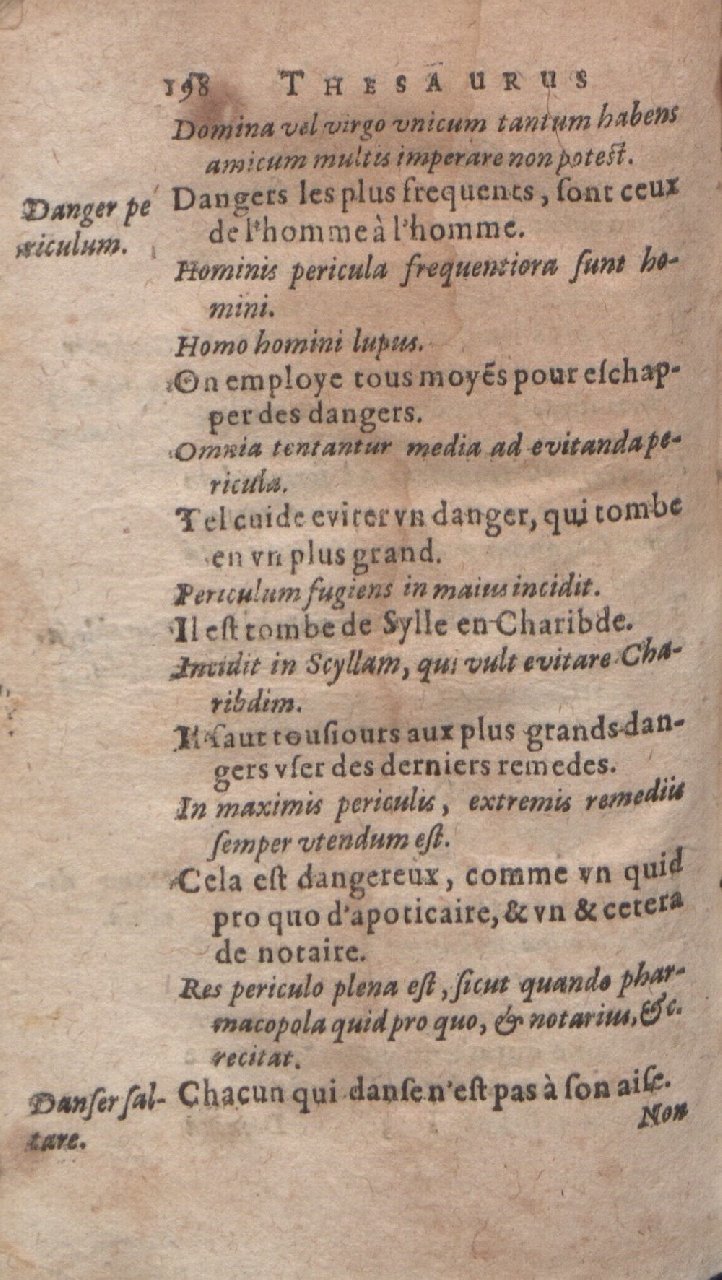 198 THESAURUS
Domina vel virgo vnicum tantum habens
amicum multis imperare non potest.
Danger pe
riculum.
Dangers les plus frequents, sont ceux
de l'homme à l'homme.
Hominis pericula frequentiora sunt ho-
mini.
Homo homini lupus.
On employe tous moyẽs pour eſchap-
per des dangers.
Omnia tentantur media ad evitanda pe-
ricula.
Tel cuide eviter vn danger, qui tombe
en vn plus grand.
Periculum fugiens in maius incidit.
Il eſt tombe de Sylle en Charibde.
Incidit in Scyllam, qui vult evitare Cha-
ribdim.
Il faut touſiours aux plus grands dan-
gers vſer des derniers remedes.
In maximis periculis, extremis remediis
ſemper vtendum eſt.
Cela eſt dangereux, comme vn quid
pro quo d'apoticaire, & vn & cetera
de notaire.
Res periculo plena eſt, ſicut quando phar-
macopola quid pro quo, & notarius, &c.
recitat.
Danſer ſal-
tare.
Chacun qui danſe n'eſt pas à ſon aiſe.
Non